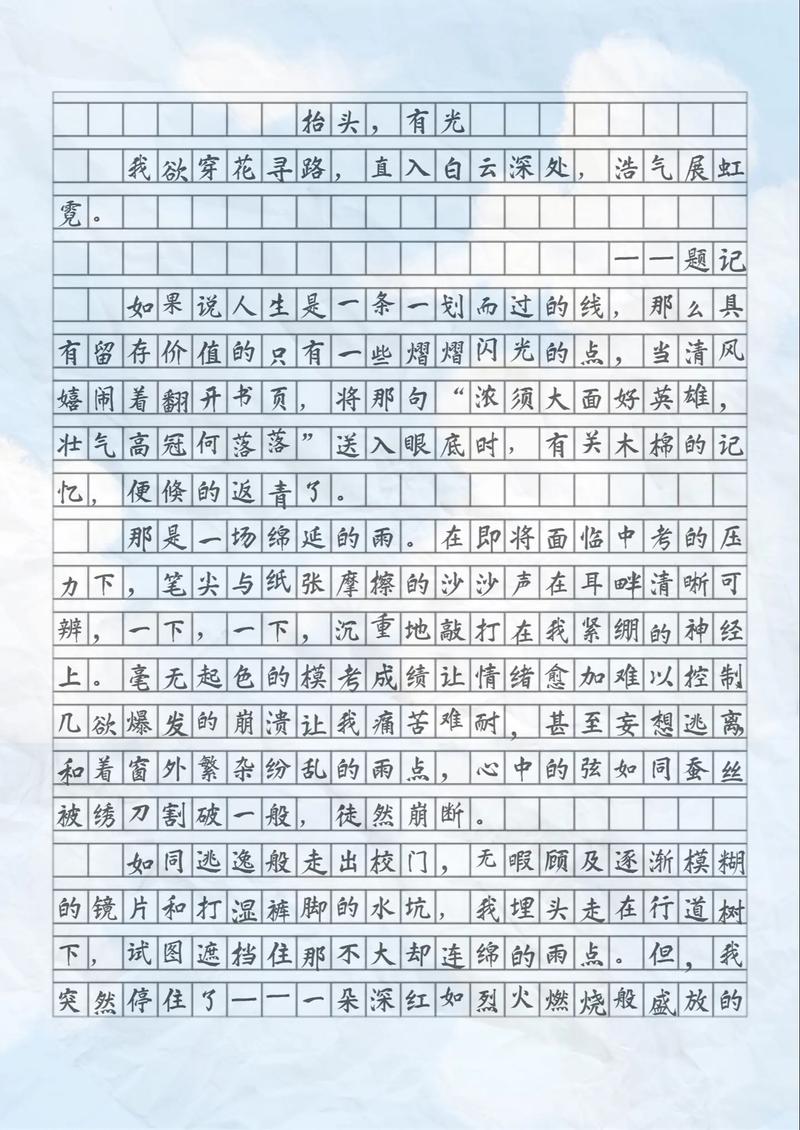 抬头，有光
我欲穿花寻路，直入白云深处，浩气展虹
霓。
——题记
如果说人生是一条一划而过的线，那么具
有留存价值的只有一些熠熠闪光的点，当清风
嬉闹着翻开书页，将那句“浓须大面好英雄，
壮气高冠何落落”送入眼底时，有关木棉的记
忆，便倏的返青了。
那是一场绵延的雨。在即将面临中考的压
力下，笔尖与纸张摩擦的沙沙声在耳畔清晰可
辨，一下，一下，沉重地敲打在我紧绷的神经
上。毫无起色的模考成绩让情绪愈加难以控制
几欲爆发的崩溃让我痛苦难耐，甚至妄想逃离
和着窗外繁杂纷乱的雨点，心中的弦如同蚕丝
被绣刀割破一般，徒然崩断。
如同逃逸般走出校门，无暇顾及逐渐模糊
的镜片和打湿裤脚的水坑，我埋头走在行道树
下，试图遮挡住那不大却连绵的雨点。但，我
突然停住了——一朵深红如烈火燃烧般盛放的